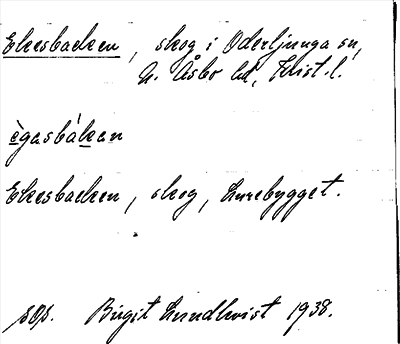 Ekesbacken, skog i Oderljunga sn,
N. Åsbo hd, Krist. l.
ègasbàkan
Ekesbacken, skog, Lurebygget.
Birgit Lundkvist 1938.